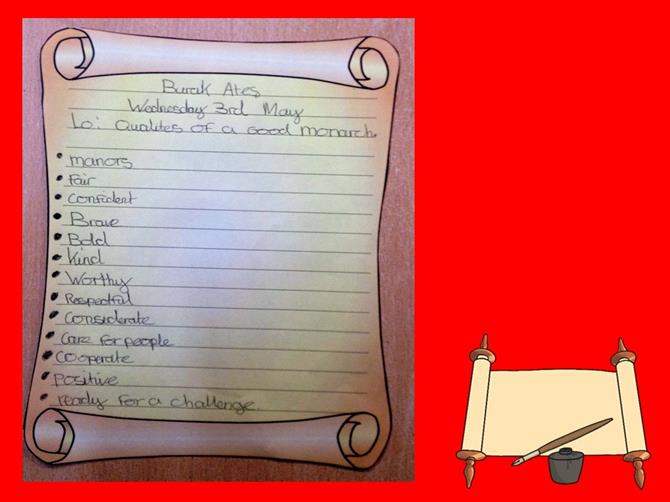 Burak Ates
Wednesday 3rd May
Lo: Qualites of a Good monarch.
• manors
• Fair
• Confident
• Brave
• Bold
• Kind
• Worthy
• Respectful
• Considerate
• Care for people
• Cooperate
• Positive
• ready for a challenge.